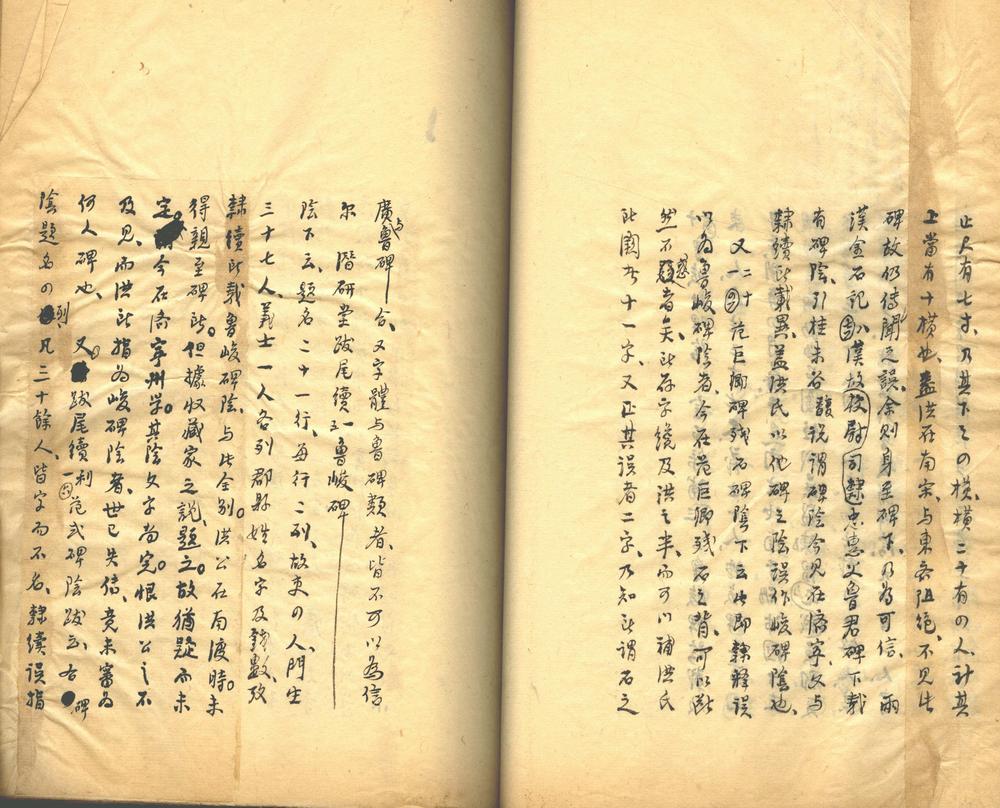 止尺有七寸、乃其下之四横、横二十有四人、計其
上當有十横也、盖洪在南宋、与東兖阻绝、不見此
碑、故仍传闻之误、余则身至碑下、乃为可信、
两漢金石記八、漢故校尉司隸忠惠父魯君碑下载
有碑陰、引桂未谷馥说谓碑陰今見在濟宁、文与
隸續所载異、盖洪氏以他碑之陰误作峻碑陰也、
又二十一范巨卿碑残石碑陰下云此即隸释误
以为魯峻碑陰者、今在范巨卿残石之背、可以断
然不惑者矣、所存字纔及洪之半、而可以補洪氏
所闕者十一字、又正其误者二字、乃知所谓石之
廣与魯碑合、又字體与魯碑類者、皆不可以為信
尔 潛研堂跋尾續一魯峻碑
陰下云、题名二十一行、每行二列、故吏四人、門生
三十七人、義士一人各列郡縣姓名字及錢數、攷
隸續所载魯峻碑陰、与此全别。洪公在南渡時。未
得親至碑所。但據收藏家之説題之。故猶疑而未
定。今在濟寧州学。其陰文字尚完。恨洪公之不
及見、而洪所指为峻碑陰者、世已失传、竟未審为
何人碑也、又跋尾續利范式碑陰跋云、右碑
陰题名四列、凡三十餘人、皆字而不名、隸續误指